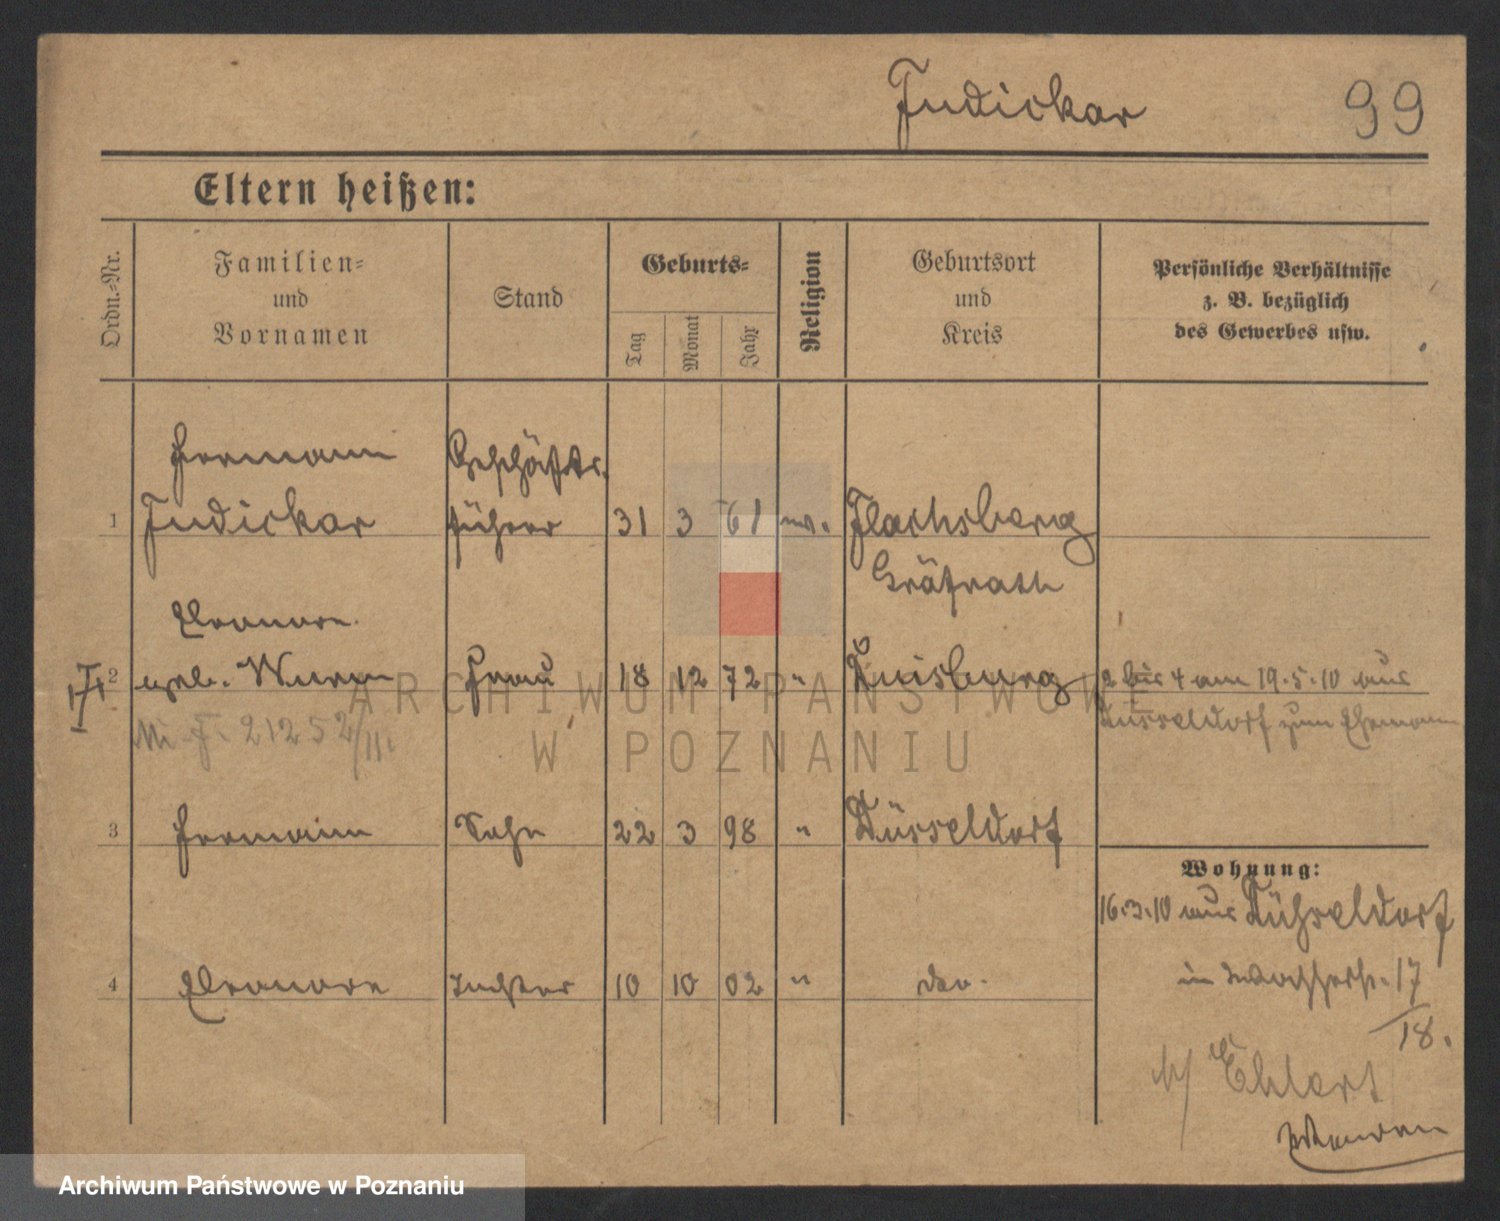 Judickar 99
Eltern heißen:
Ordn.-Nr.
Familien-
und
Vornamen
Stand
Geburts-
Tag
Monat
Jahr
Religion
Geburtsort
und
Kreis
Persönliche Verhältnisse
z. B. bezüglich
des Gewerbes usw.
Hermann Geschäfts-
1 Judickar führer 31 3 61 ev. Flachsberg
Gräfrath
Eleonore
2 geb. Wurm Frau 18 12 72 " Duisburg 2 bis 4 am 19.5.10 aus
21252/11. Düsseldorf zum Ehemann
3 Hermann Sohn 22 3 98 " Düsseldorf
Wohnung:
16.3.10 aus Düsseldorf
4 Eleonore Tochter 10 10 02 " do.
in 17
/18.
b/ Ehlert
ARCHIWUM PAŃSTWOWE
W POZNANIU
Archiwum Państwowe w Poznaniu